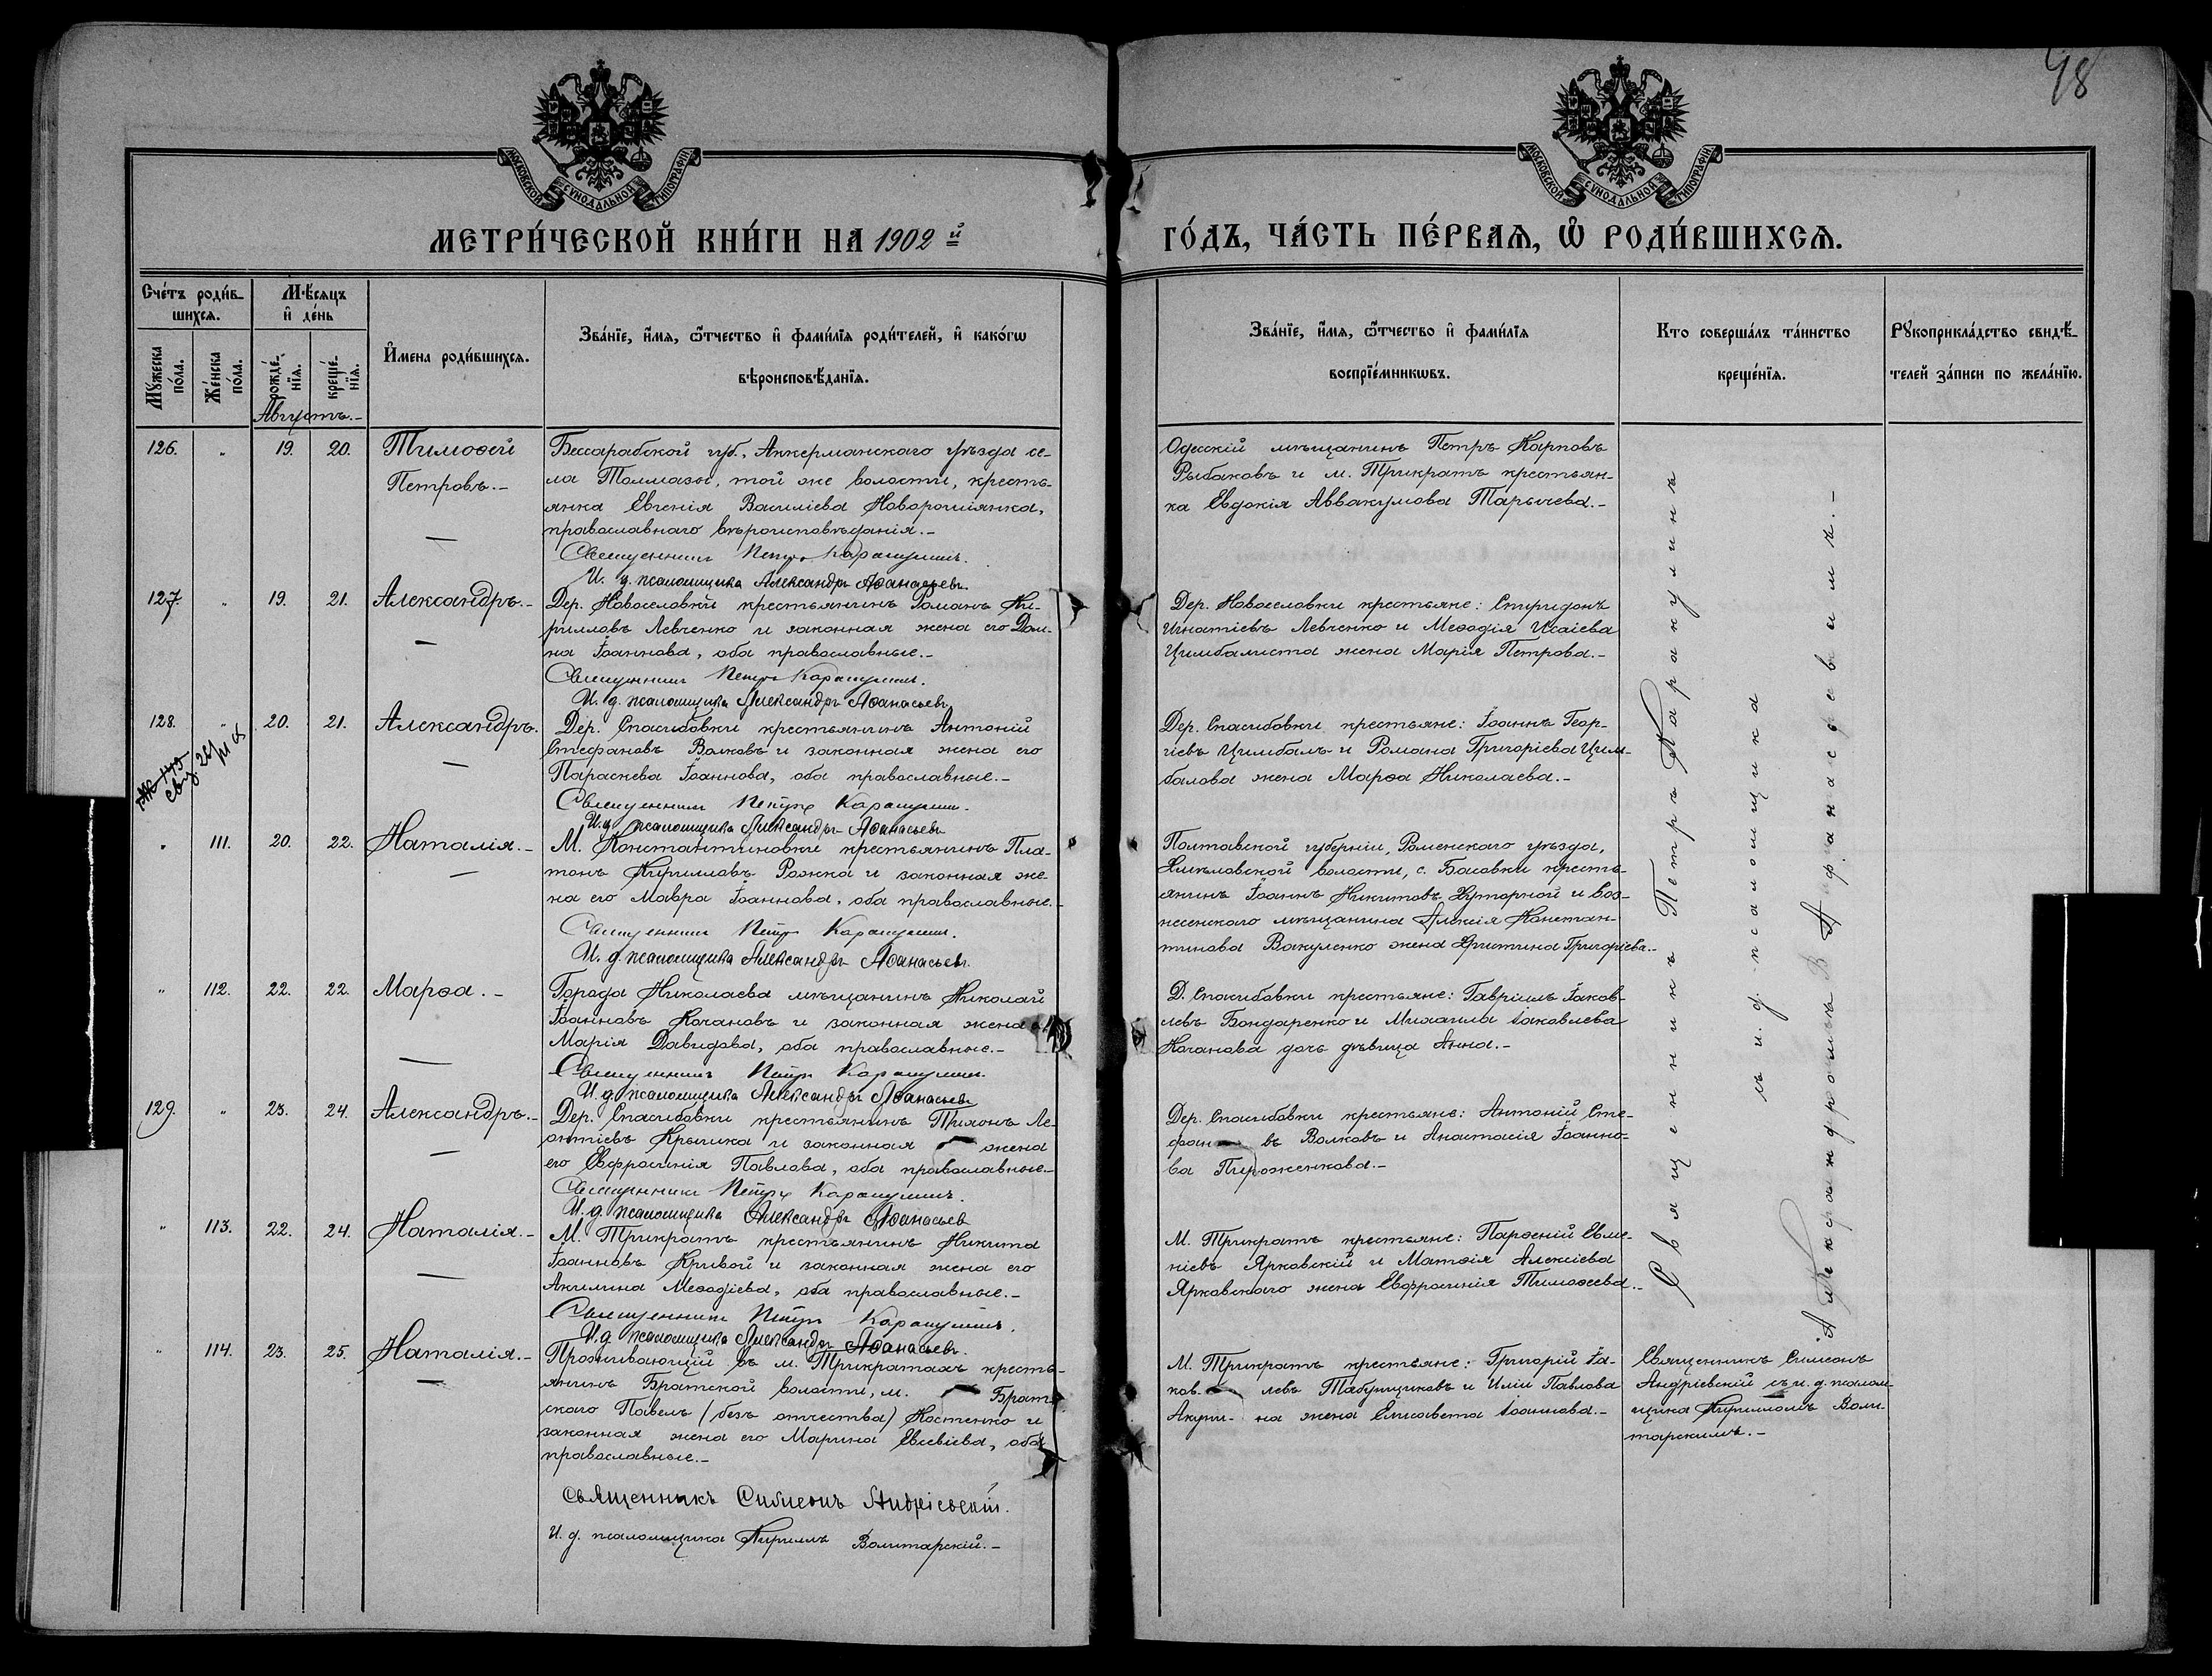 48
МОСКОВСКОЙ СѴНОДАЛЬНОЙ ТИПОГРАФІИ
МОСКОВСКОЙ СѴНОДАЛЬНОЙ ТИПОГРАФІИ
МЕТРИ́ЧЕСКОЙ КНИ́ГИ НА 1902й
ГО́ДЪ, ЧА́СТЬ ПЕ́РВАѦ, Ѽ РОДИ́ВШИХСѦ.
Сче́тъ роди́в-
шихсѧ.
Мѣ́сѧцъ
и҆ де́нь
Мꙋ́жеска по́ла.
Же́нска по́ла.
рожде́-нїѧ.
креще́-нїѧ.
И҆мена роди́вшихсѧ.
Зва́нїе, и҆́мѧ, ѻ҆́тчество и҆ фами́лїѧ роди́телей, и҆ како́гѡ
вѣроисповѣ́данїѧ.
Зва́нїе, и҆́мѧ, ѻ҆́тчество и҆ фами́лїѧ
воспрїе́мникѡвъ.
Кто соверша́лъ та́инство
креще́нїѧ.
Рꙋкоприкла́дство свидѣ́-
телей за́писи по жела́нїю.
Августъ.-
126. " 19. 20. Тимоѳей
Петровъ.-
Бессарабской губ., Аккерманскаго уѣзда се-
ла Толмазы, той же волости, кресть-
янка Евгенія Василіева Новорошіянка,
православнаго вѣроисповѣданія.-
Священникъ Петръ Каракулинъ.
И. д. псаломщика Александръ Аѳанасьевъ
Одесскій мѣщанинъ Петръ Карповъ
Рыбаковъ и м. Трикратъ крестьян-
ка Евдокія Аввакумова Тарычева.-
127. " 19. 21. Александръ.-
Дер. Новоселовки крестьянинъ Романъ Ки-
рилловъ Левченко и законная жена его Дом-
на Іоаннова, оба православные.-
Священникъ Петръ Каракулинъ.
И. д. псаломщика Александръ Аѳанасьевъ
Дер. Новоселовки крестьяне: Спиридонъ
Игнатіевъ Левченко и Меѳодія Исаіева
Цимбалиста жена Марія Петрова.-
128. " 20. 21. Александръ.
Дер. Спасибовки крестьянинъ Антоній
Стефановъ Волковъ и законная жена его
Параскева Іоаннова, оба православные.-
Священникъ Петръ Каракулинъ.
И.д. псаломщика Александръ Аѳанасьевъ
Дер. Спасибовки крестьяне: Іоаннъ Геор-
гіевъ Цимбалъ и Романа Григоріева Цим-
балова жена Марѳа Николаева.-
" 111. 20. 22. Наталія.-
М. Константиновки крестьянинъ Пла-
тонъ Кирилловъ Рожка и законная же-
на его Мавра Іоаннова, оба православные.-
Священникъ Петръ Каракулинъ.
И. д. псаломщика Александръ Аѳанасьевъ.
Полтавской губерніи, Роменскаго уѣзда,
Хмѣловской волости, с. Басовки кресть-
янинъ Іоаннъ Никитовъ Хуторной и Воз-
несенскаго мѣщанина Алексія Констан-
тинова Вакуленко жена Христина Григоріева.-
" 112. 22. 22. Марѳа.-
Города Николаева мѣщанинъ Николай
Іоанновъ Кочановъ и законная жена
Марія Давидова, оба православные.-
Священникъ Петръ Каракулинъ.
И. д. псаломщика Александръ Аѳанасьевъ
Д. Спасибовки крестьяне: Гавріилъ Іаков-
левъ Бондаренко и Михаила Іаковлева
Кочанова дочь дѣвица Анна.-
129. " 23. 24. Александръ.-
Дер. Спасибовки крестьянинъ Тихонъ Ле-
онтіевъ Крычка и законная жена
его Евфросинія Павлова, оба православные.-
Священникъ Петръ Каракулинъ.
И. д. псаломщика Александръ Аѳанасьев
Дер. Спасибовки крестьяне: Антоній Сте-
фановъ Волковъ и Анастасія Іоанно-
ва Пироженкова.-
" 113. 22. 24. Наталія.-
М. Трикратъ крестьянинъ Никита
Іоанновъ Кривой и законная жена его
Акилина Меѳодіева, оба православные.-
Священникъ Петръ Каракулинъ.
И.д. псаломщика Александръ Аѳанасьевъ.
М. Трикратъ крестьяне: Парѳеній Евме-
ніевъ Ярковскій и Матѳія Алексіева
Ярковскаго жена Евфросинія Тимоѳеева.-
" 114. 23. 25. Наталія.-
Проживающій въ м. Трикратахъ кресть-
янинъ Братской волости, м. Брат-
скаго Павелъ (безъ отчества) Костенко и
законная жена его Марина Евсевіева, оба
православные.-
Священникъ Симеонъ Андріевскій.
И. д. псаломщика Кириллъ Волитарскій.-
М. Трикратъ крестьяне: Григорій Іа-
ковлевъ Табунщиковъ и Иліи Павлова
Акуши-на жена Елисавета Іоаннова.-
Священникъ Симеонъ
Андріевскій съ и. д. псалом-
щика Кирилломъ Воли-
тарскимъ.-
Священникъ Петръ Каракулинъ
съ и. д. псаломщика
Александромъ В Афанасьевымъ.-